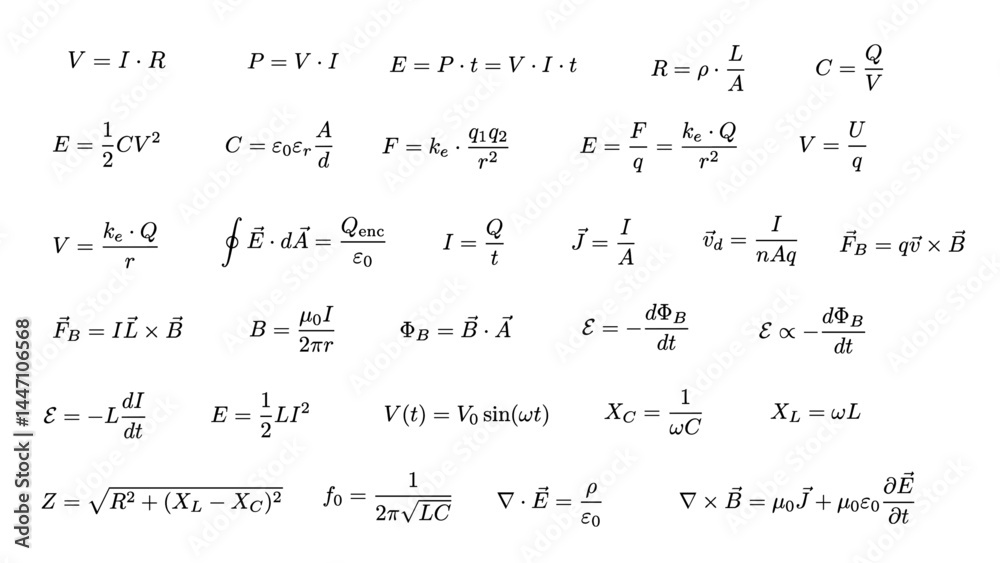 V = I · R    P = V · I    E = P · t = V · I · t    R = ρ · L/A    C = Q/V
E = 1/2 CV²    C = ε₀εᵣ A/d    F = kₑ · q₁q₂/r²    E = F/q = kₑ · Q/r²    V = U/q
V = kₑ · Q/r    ∮ E⃗ · dA⃗ = Q_enc/ε₀    I = Q/t    J⃗ = I/A    v⃗_d = I/nAq    F⃗_B = qv⃗ × B⃗
F⃗_B = IL⃗ × B⃗    B = μ₀I/2πr    Φ_B = B⃗ · A⃗    ℰ = −dΦ_B/dt    ℰ ∝ −dΦ_B/dt
ℰ = −L dI/dt    E = 1/2 LI²    V(t) = V₀ sin(ωt)    X_C = 1/ωC    X_L = ωL
Z = √(R² + (X_L − X_C)²)    f₀ = 1/2π√(LC)    ∇ · E⃗ = ρ/ε₀    ∇ × B⃗ = μ₀J⃗ + μ₀ε₀ ∂E⃗/∂t
Adobe Stock | #1447106568
Adobe Stock